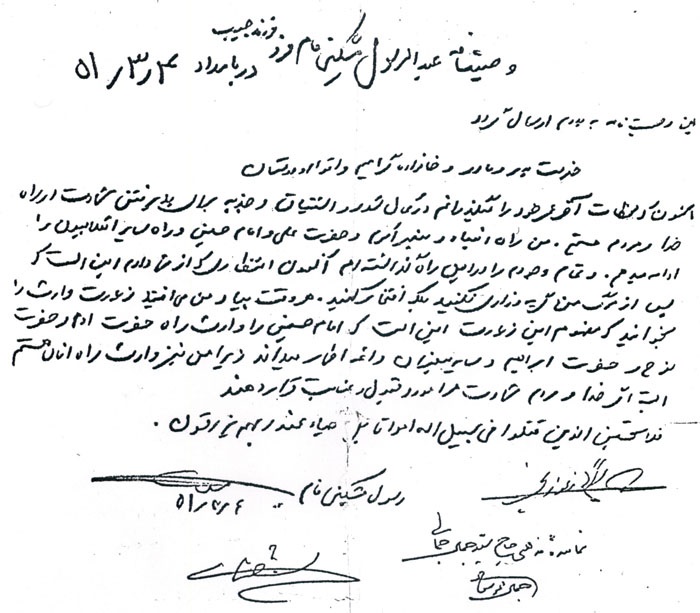 وصیتنامه عبدالرسول مشکین فام فرزند حبیب
در بامداد ۴ر۳ر۵۱
این وصیت نامه به پدرم ارسال گردد
خدمت پدر و مادر و خانواده گرامیم و اقوام و دوستان
اکنون که لحظات آخر عمر خود را میگذرانم در کمال شور و اشتیاق و جذبه برای پذیرفتن شهادت در راه
خدا و مردم هستم. من راه انبیاء و پیغمبر اکرم و حضرت علی و امام حسین و راه سایر انقلابیون را
ادامه میدهم. و تمام وجودم را در این راه گذاشته ام اکنون انتظاری که از شما دارم این است که
پس از مرگ من گریه و زاری نکنید بلکه افتخار کنید. هر وقت بیاد من می افتید زیارت وارث را
بخوانید که مفهوم این زیارت این است که امام حسین را وارث راه حضرت ادم و حضرت
نوح و حضرت ابراهیم و سایر پیغمبران و ائمه اطهار میداند زیرا من نیز وارث راه انان هستم
البته اگر خدا و مردم شهادت مرا مورد قبول و عنایت قرار دهند
ولا تحسبن الذین قتلوا فی سبیل اله امواتا بل حیاء عند ربهم یرزقون.
رسول مشکین فام
۵۱ر۳ر۴
نماینده